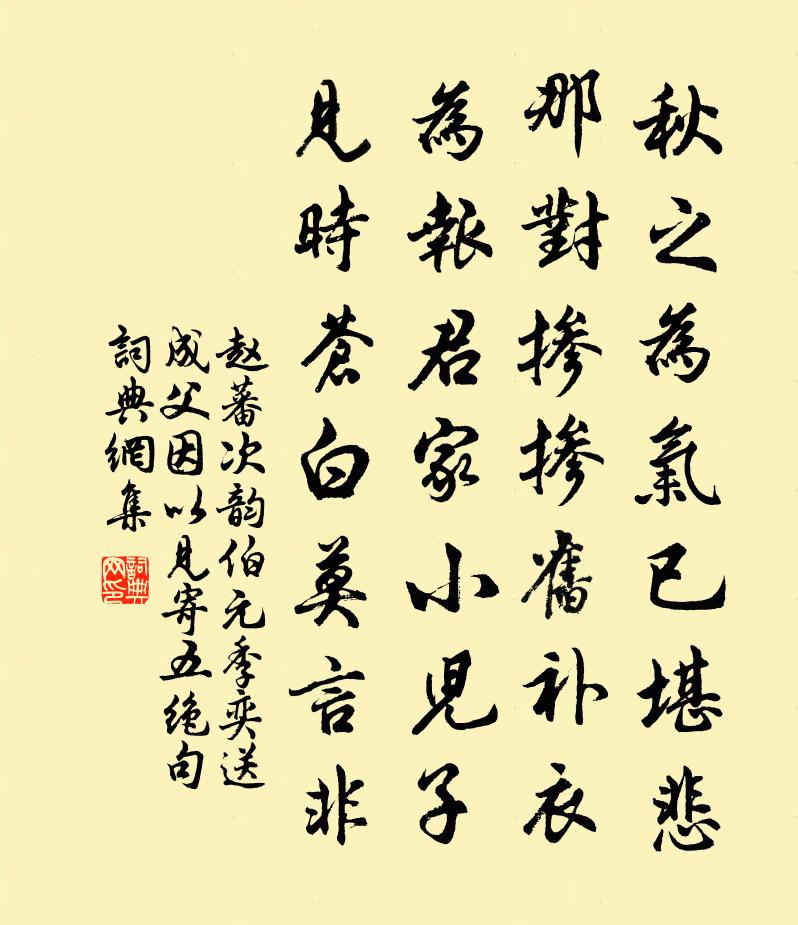 秋之為氣已堪悲
那對掺掺舊补衣
為報君家小児子
見時蒼白莫言非
赵蕃次韵伯元季奕送
成父因以見寄五絶句
詞典網集
詞典网印